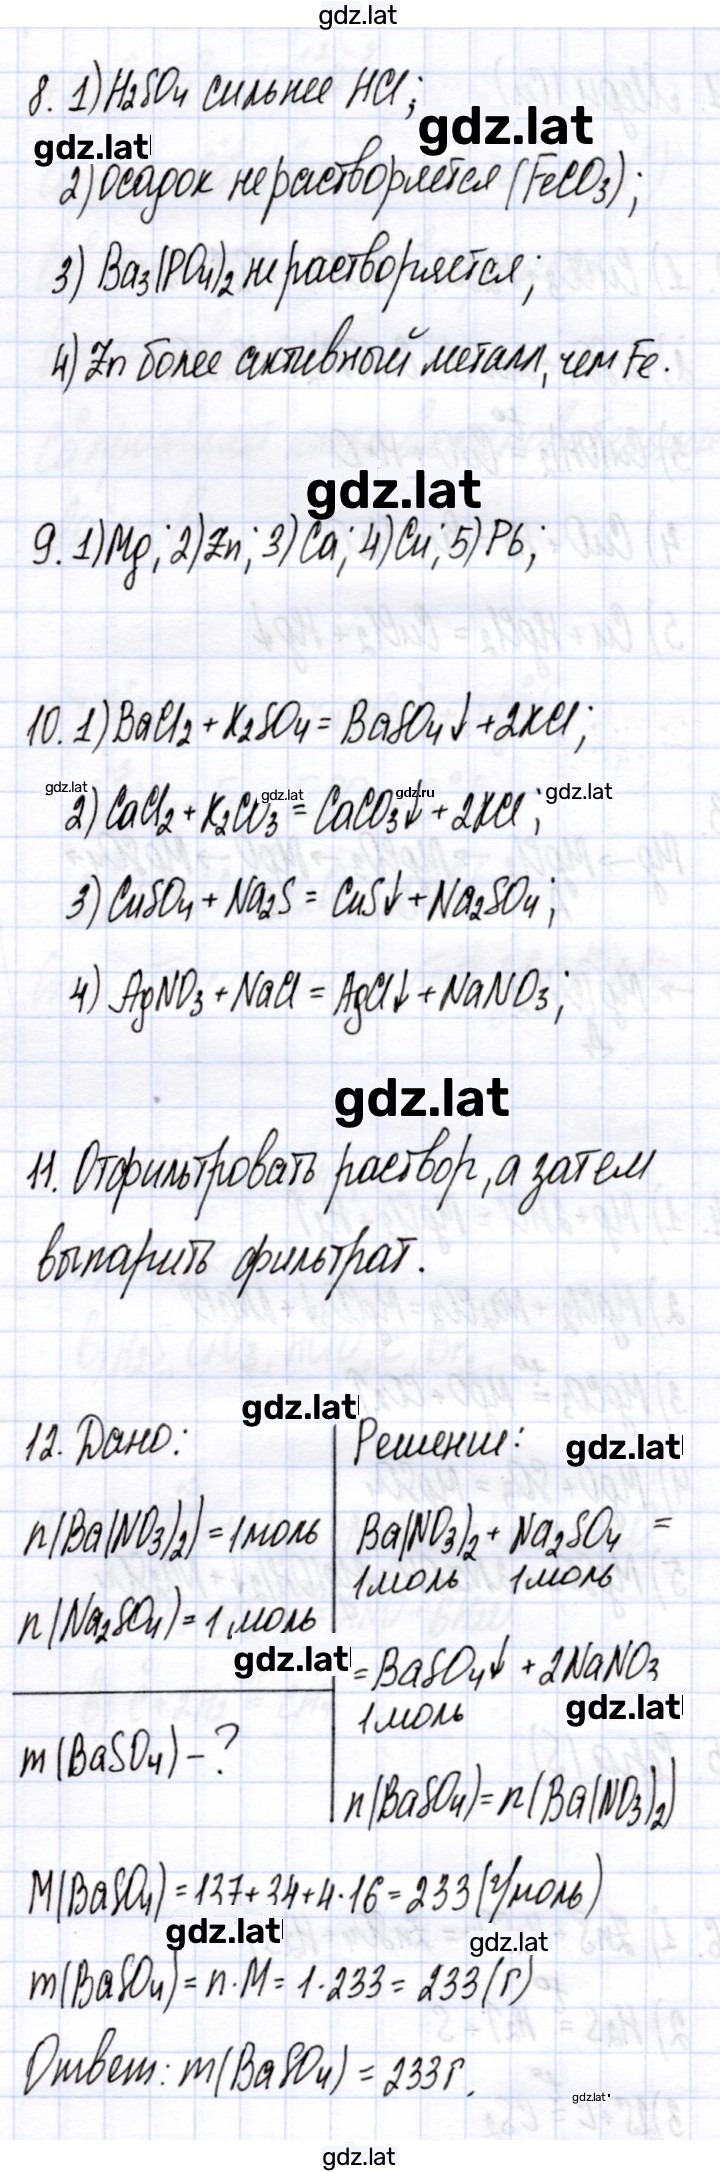 gdz.lat
8. 1) H₂SO₄ сильнее HCl;
gdz.lat
gdz.lat
2) Осадок не растворяется (FeCO₃);
3) Ba₃(PO₄)₂ не растворяется;
4) Zn более активный металл, чем Fe.
gdz.lat
9. 1) Mg; 2) Zn; 3) Ca; 4) Cu; 5) Pb;
10. 1) BaCl₂ + K₂SO₄ = BaSO₄↓ + 2KCl;
gdz.lat gdz.lat gdz.ru gdz.lat
2) CaCl₂ + K₂CO₃ = CaCO₃↓ + 2KCl;
3) CuSO₄ + Na₂S = CuS↓ + Na₂SO₄;
4) AgNO₃ + NaCl = AgCl↓ + NaNO₃;
gdz.lat
11. Отфильтровать раствор, а затем
выпарить фильтрат.
gdz.lat
12. Дано:
n(Ba(NO₃)₂) = 1 моль
n(Na₂SO₄) = 1 моль
gdz.lat
m(BaSO₄) - ?
Решение:
gdz.lat
Ba(NO₃)₂ + Na₂SO₄ =
1 моль 1 моль
= BaSO₄↓ + 2NaNO₃
1 моль
gdz.lat
n(BaSO₄) = n(Ba(NO₃)₂)
M(BaSO₄) = 137 + 34 + 4·16 = 233 (г/моль)
gdz.lat
gdz.lat
m(BaSO₄) = n·M = 1·233 = 233 (г)
Ответ: m(BaSO₄) = 233 г.
gdz.lat
gdz.lat